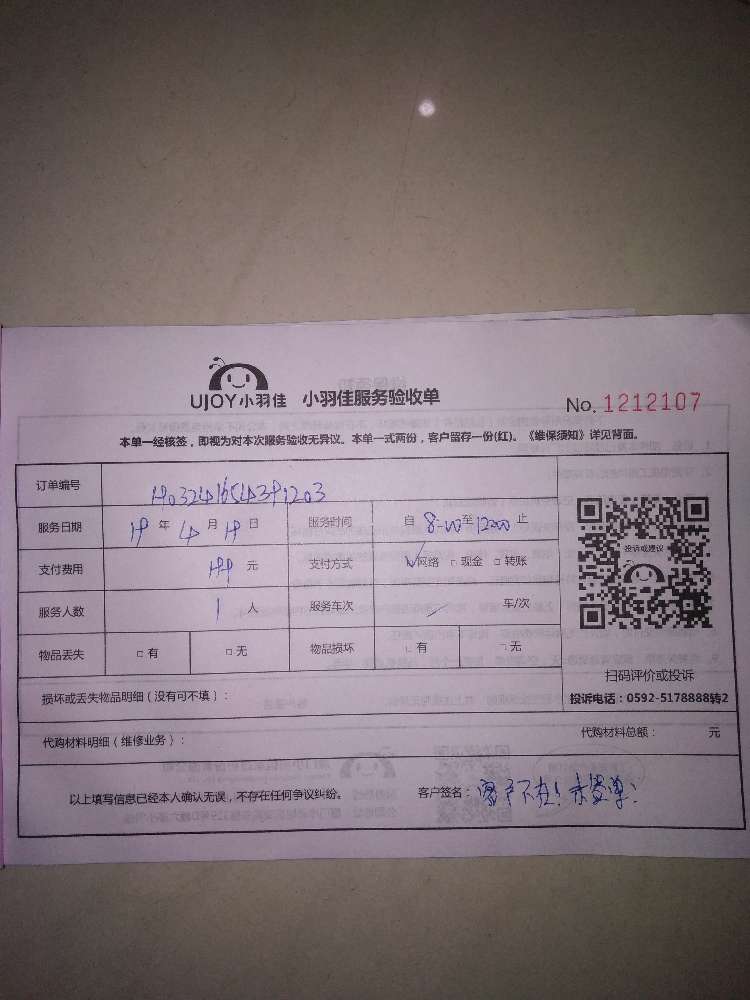 UJOY小羽佳 小羽佳服务验收单
No. 1212107
本单一经核签，即视为对本次服务验收无异议。本单一式两份，客户留存一份(红)。《维保须知》详见背面。
订单编号
服务日期 19 年 4 月 19 日 服务时间 自 8-00 至 1200 止
支付费用 元 支付方式 ☑网络 □ 现金 □ 转账
服务人数 1 人 服务车次 / 车/次
物品丢失 □ 有 □ 无 物品损坏 □ 有 □ 无
投诉或建议
扫码评价或投诉
投诉电话：0592-5178888转2
损坏或丢失物品明细（没有可不填）：
代购材料明细（维修业务）： 代购材料总额： 元
以上填写信息已经本人确认无误，不存在任何争议纠纷。 客户签名：客户不在！未签单！